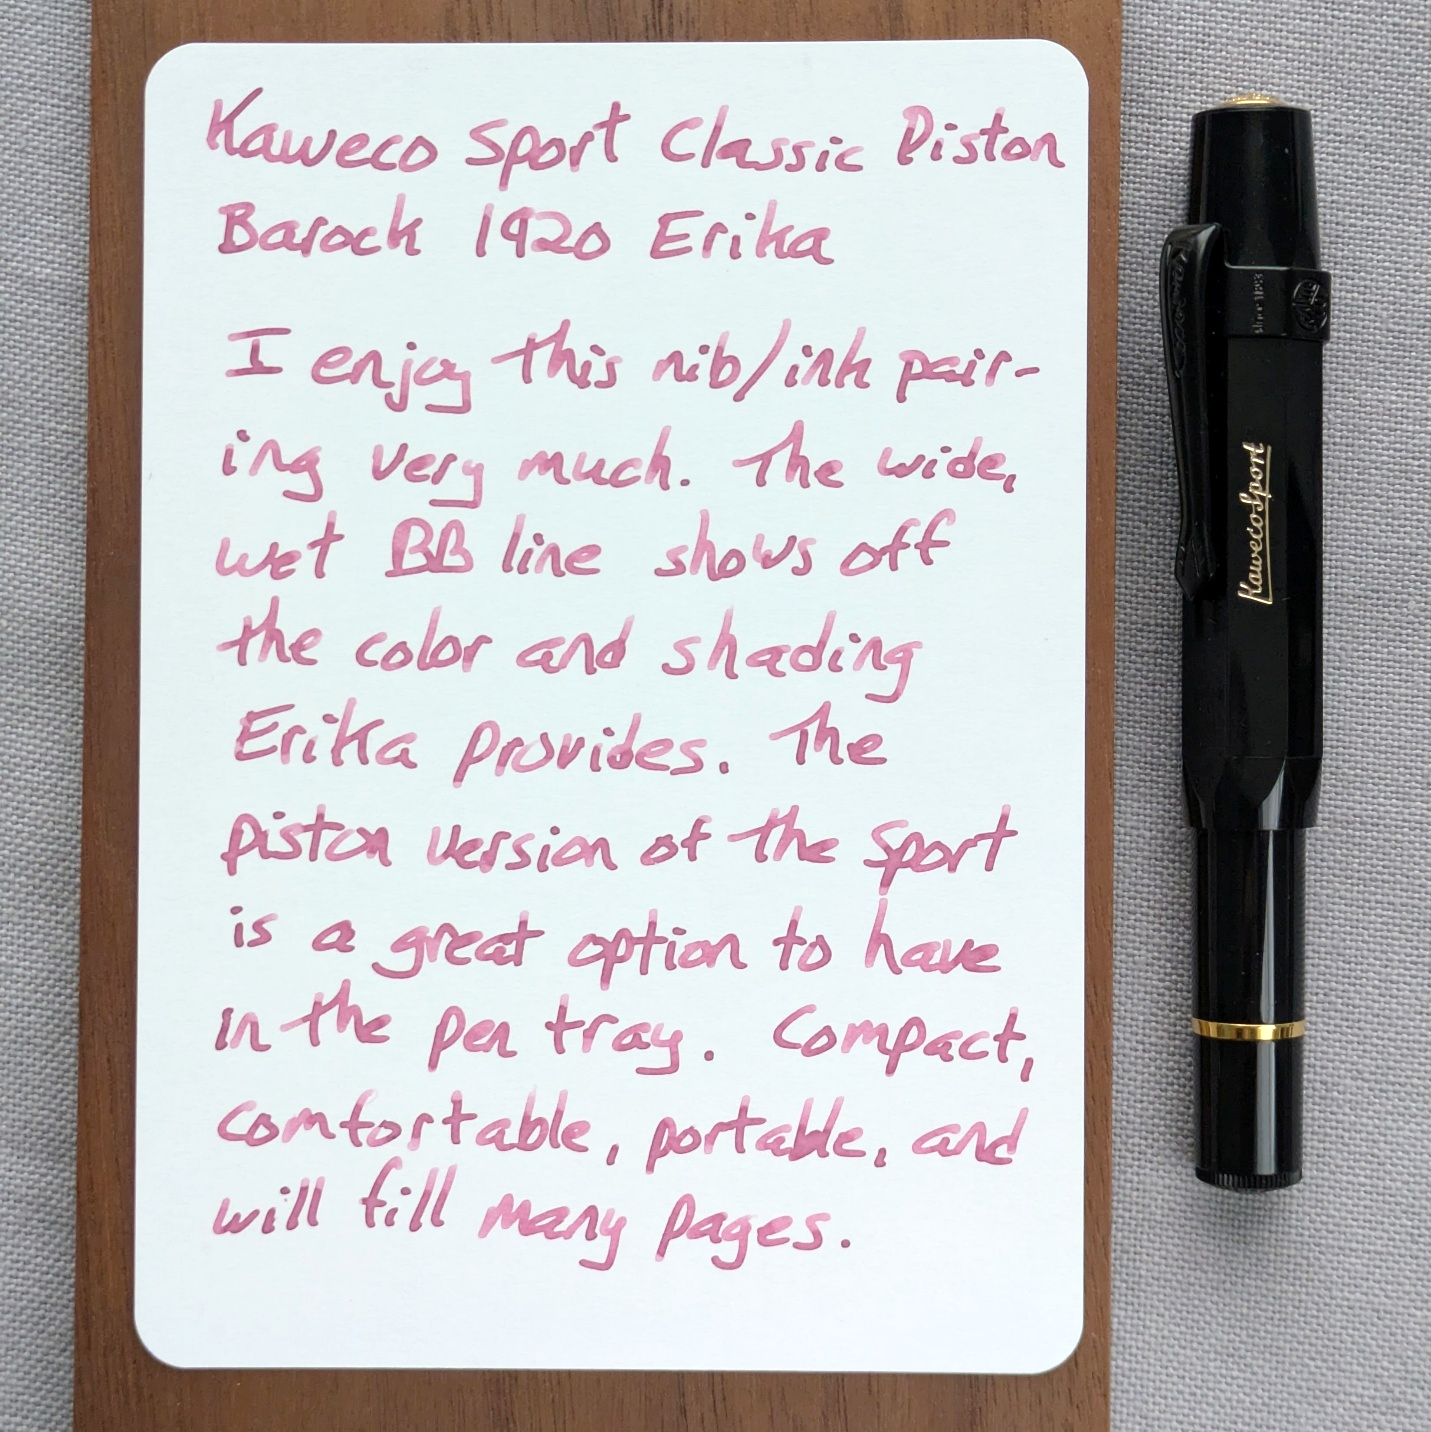 Kaweco Sport Classic Piston
Barock 1920 Erika
I enjoy this nib/ink pair-
ing very much. The wide,
wet BB line shows off
the color and shading
Erika provides. The
piston version of the Sport
is a great option to have
in the pen tray. Compact,
comfortable, portable, and
will fill many pages.
Kaweco
since 1883
KawecoSport